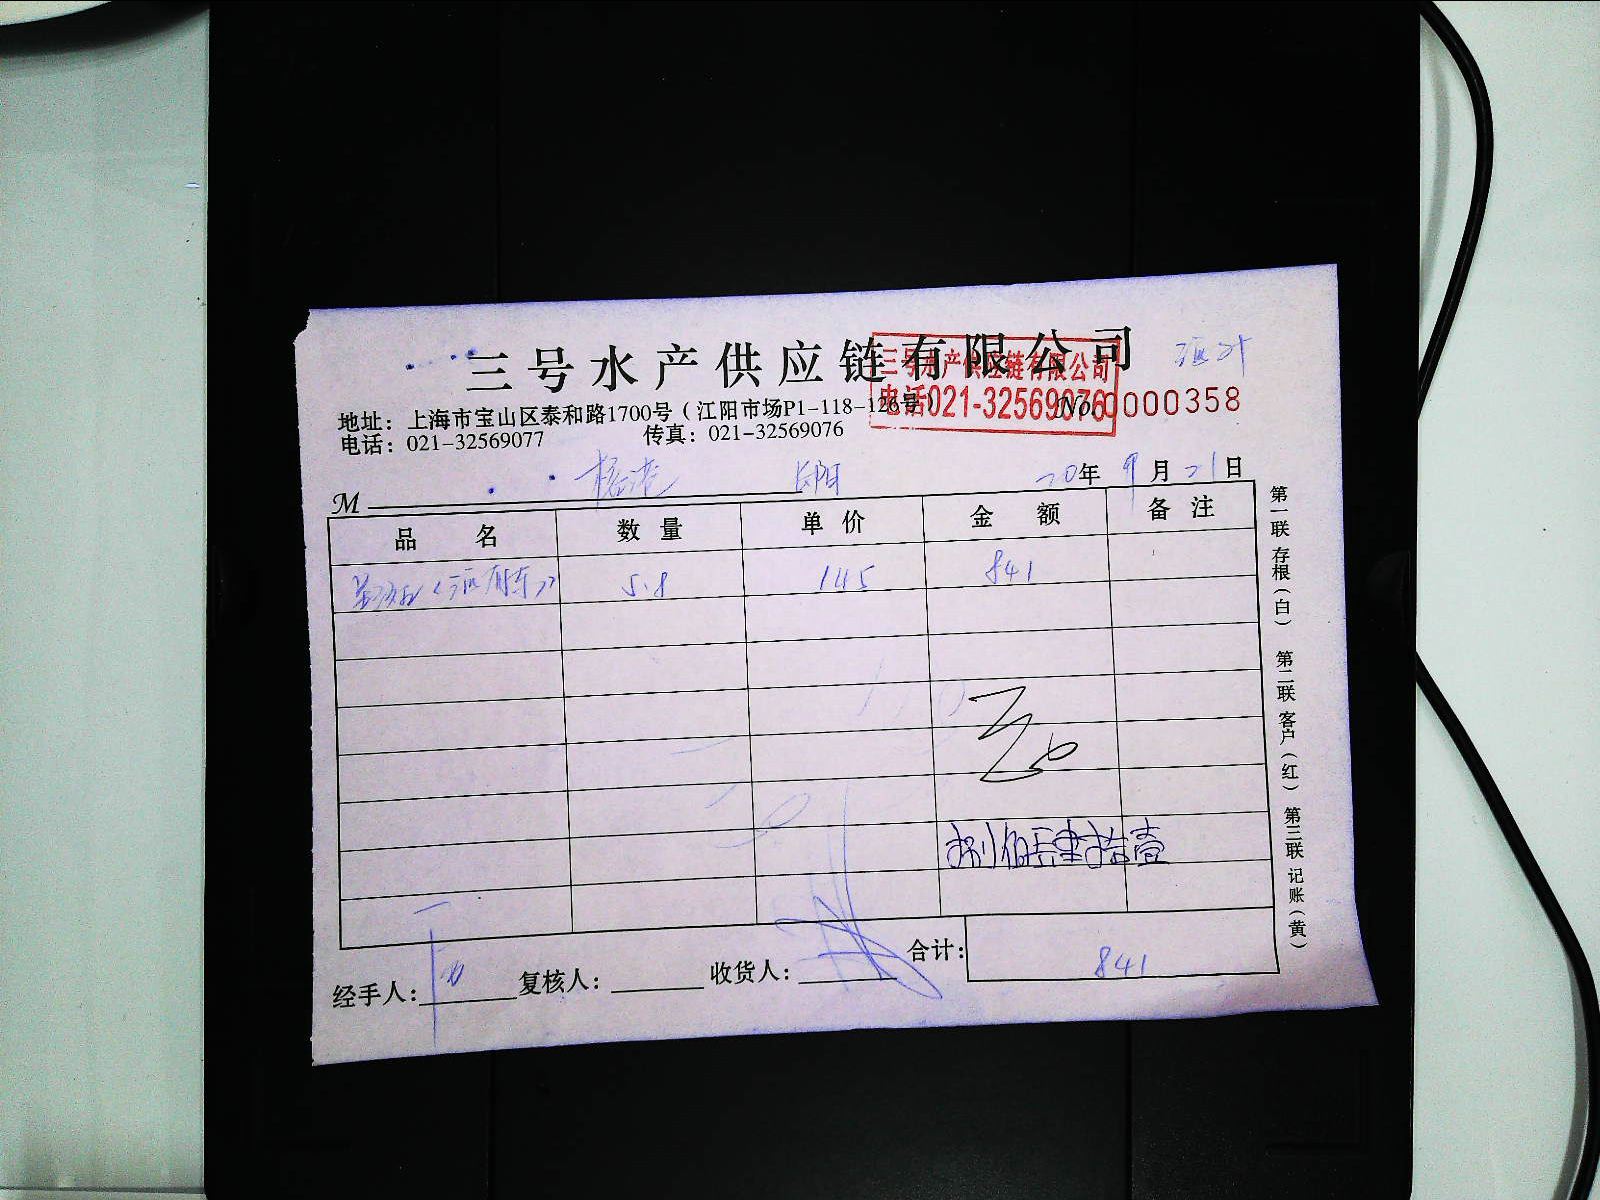 三号水产供应链有限公司
三号水产供应链有限公司
电话021-32569076
地址：上海市宝山区泰和路1700号（江阳市场P1-118-126号）
No. 0000358
电话：021-32569077 传真：021-32569076
长阳 20年 9月 21日
M
品 名 数 量 单 价 金 额 备 注
5.8 145 841
捌佰元肆拾壹
合计： 841
经手人： 复核人： 收货人：
第一联 存根（白） 第二联 客户（红） 第三联 记账（黄）